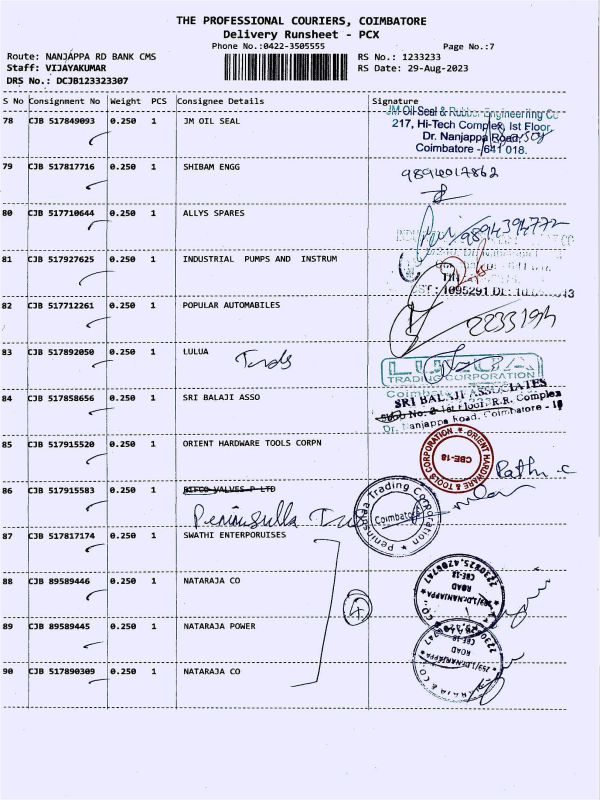 THE PROFESSIONAL COURIERS, COIMBATORE
Delivery Runsheet - PCX
Phone No.:0422-3505555 Page No.:7
Route: NANJAPPA RD BANK CMS RS No.: 1233233
Staff: VIJAYAKUMAR RS Date: 29-Aug-2023
DRS No.: DCJB123323307
S No Consignment No Weight PCS Consignee Details Signature
78 CJB 517849093 0.250 1 JM OIL SEAL
JM Oil Seal & Rubber Engineering Co
217, Hi-Tech Complex, Ist Floor,
Dr. Nanjappa Road,
Coimbatore - 641 018.
79 CJB 517817716 0.250 1 SHIBAM ENGG
9894017862
80 CJB 517710644 0.250 1 ALLYS SPARES
9894394772
81 CJB 517927625 0.250 1 INDUSTRIAL PUMPS AND INSTRUM
82 CJB 517712261 0.250 1 POPULAR AUTOMABILES
2233194
83 CJB 517892050 1 LULUA
0.250
TRADING CORPORATION
Coimbatore
84 CJB 517858656 0.250 1 SRI BALAJI ASSO
SRI BALAJI ASSOCIATES
R.R. Complex
Dr. Nanjappa Road, Coimbatore - 18
85 CJB 517915520 0.250 1 ORIENT HARDWARE TOOLS CORPN
ORIENT HARDWARE & TOOLS CORPORATION
CBE-18
86 CJB 517915583 0.250 1 BIFCO VALVES P LTD
Peninsulla
Peninsula Trading Corporation
Coimbatore
87 CJB 517817174 0.250 1 SWATHI ENTERPORUISES
88 CJB 89589446 0.250 1 NATARAJA CO
4
353/1,Dr.NANJAPPA
ROAD
CBE-18
89 CJB 89589445 0.250 1 NATARAJA POWER
353/1,Dr.NANJAPPA
ROAD
90 CJB 517890309 0.250 1 NATARAJA CO